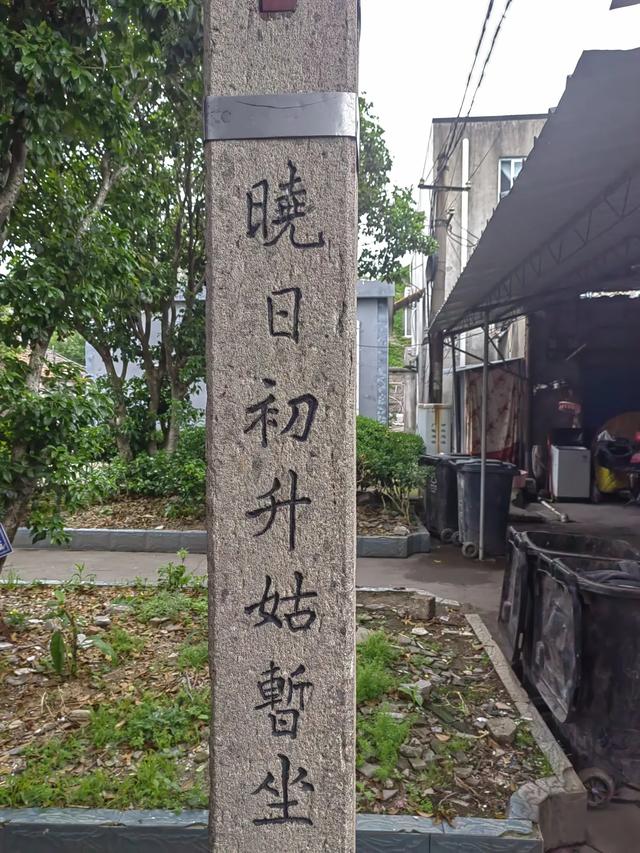 曉日初升姑暫坐